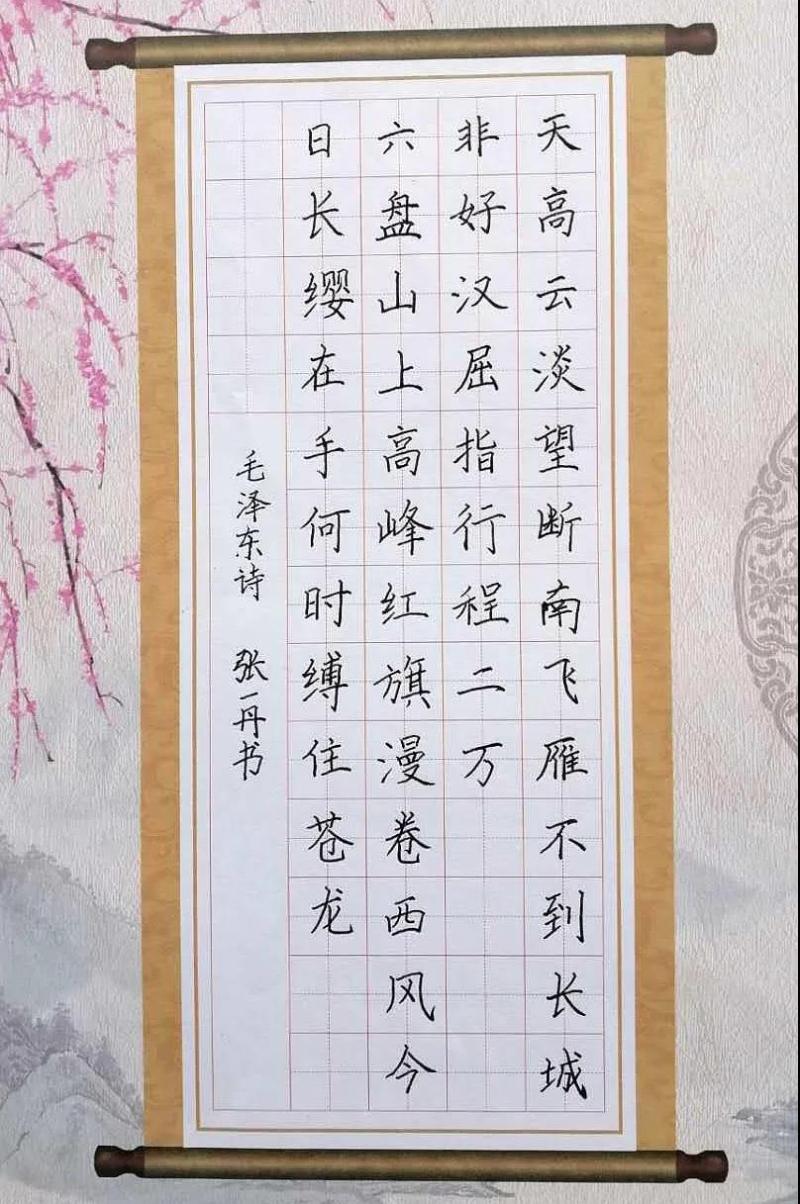 天高云淡望断南飞雁不到长城
非好汉屈指行程二万
六盘山上高峰红旗漫卷西风今
日长缨在手何时缚住苍龙
毛泽东诗 张一丹书